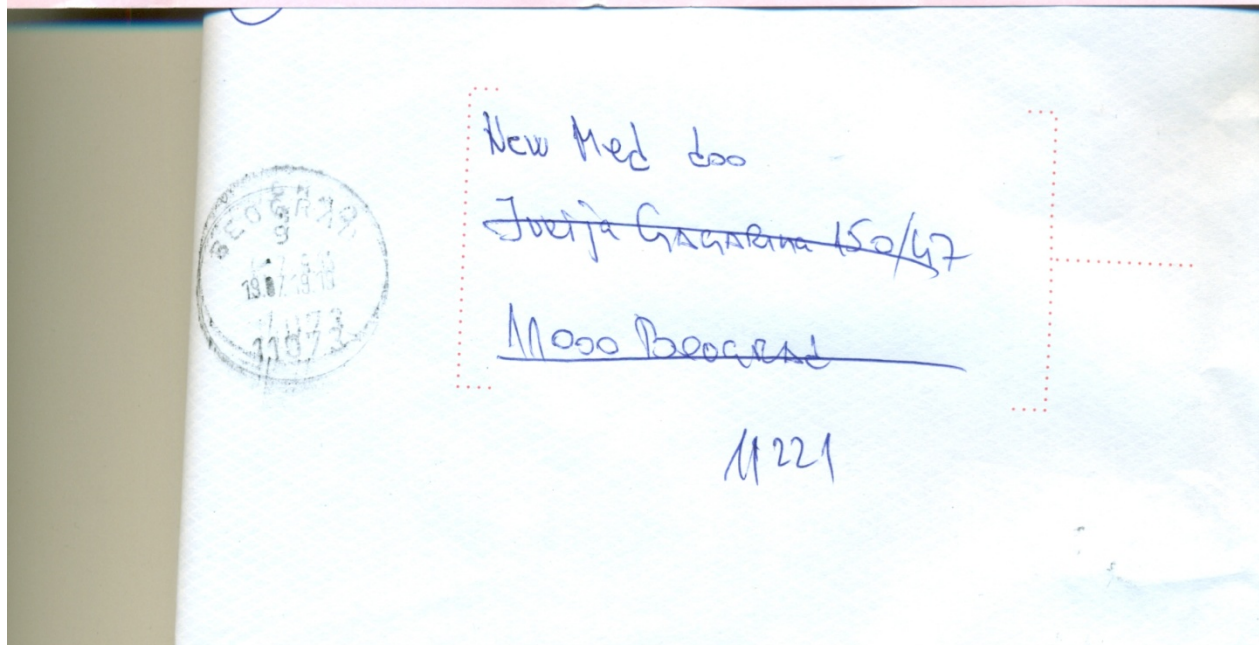 BEOGRAD
9
19.07.19.19
11073
New Med doo
Jurija Gagarina 150/47
11000 Beograd
11221